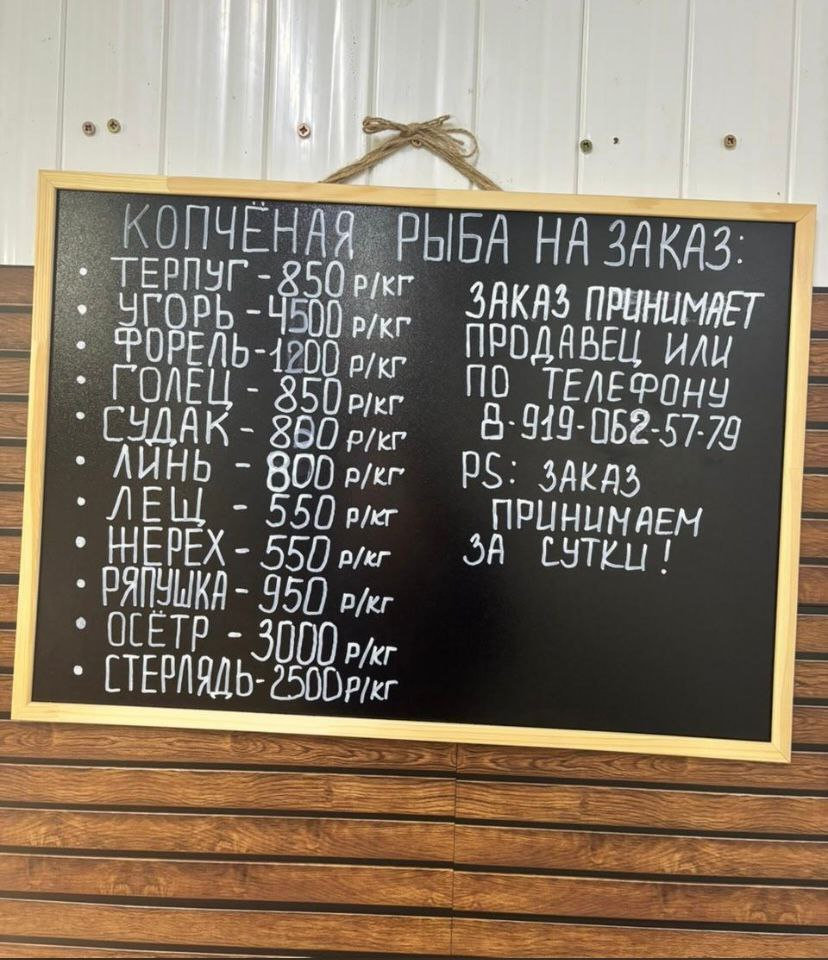 КОПЧЁНАЯ РЫБА НА ЗАКАЗ:
• ТЕРПУГ - 850 Р/КГ
• УГОРЬ - 4500 Р/КГ
• ФОРЕЛЬ - 1200 Р/КГ
• ГОЛЕЦ - 850 Р/КГ
• СУДАК - 800 Р/КГ
• ЛИНЬ - 800 Р/КГ
• ЛЕЩ - 550 Р/КГ
• ЖЕРЕХ - 550 Р/КГ
• РЯПУШКА - 950 Р/КГ
• ОСЁТР - 3000 Р/КГ
• СТЕРЛЯДЬ - 2500 Р/КГ
ЗАКАЗ ПРИНИМАЕТ
ПРОДАВЕЦ ИЛИ
ПО ТЕЛЕФОНУ
8-919-062-57-79
PS: ЗАКАЗ
ПРИНИМАЕМ
ЗА СУТКИ!